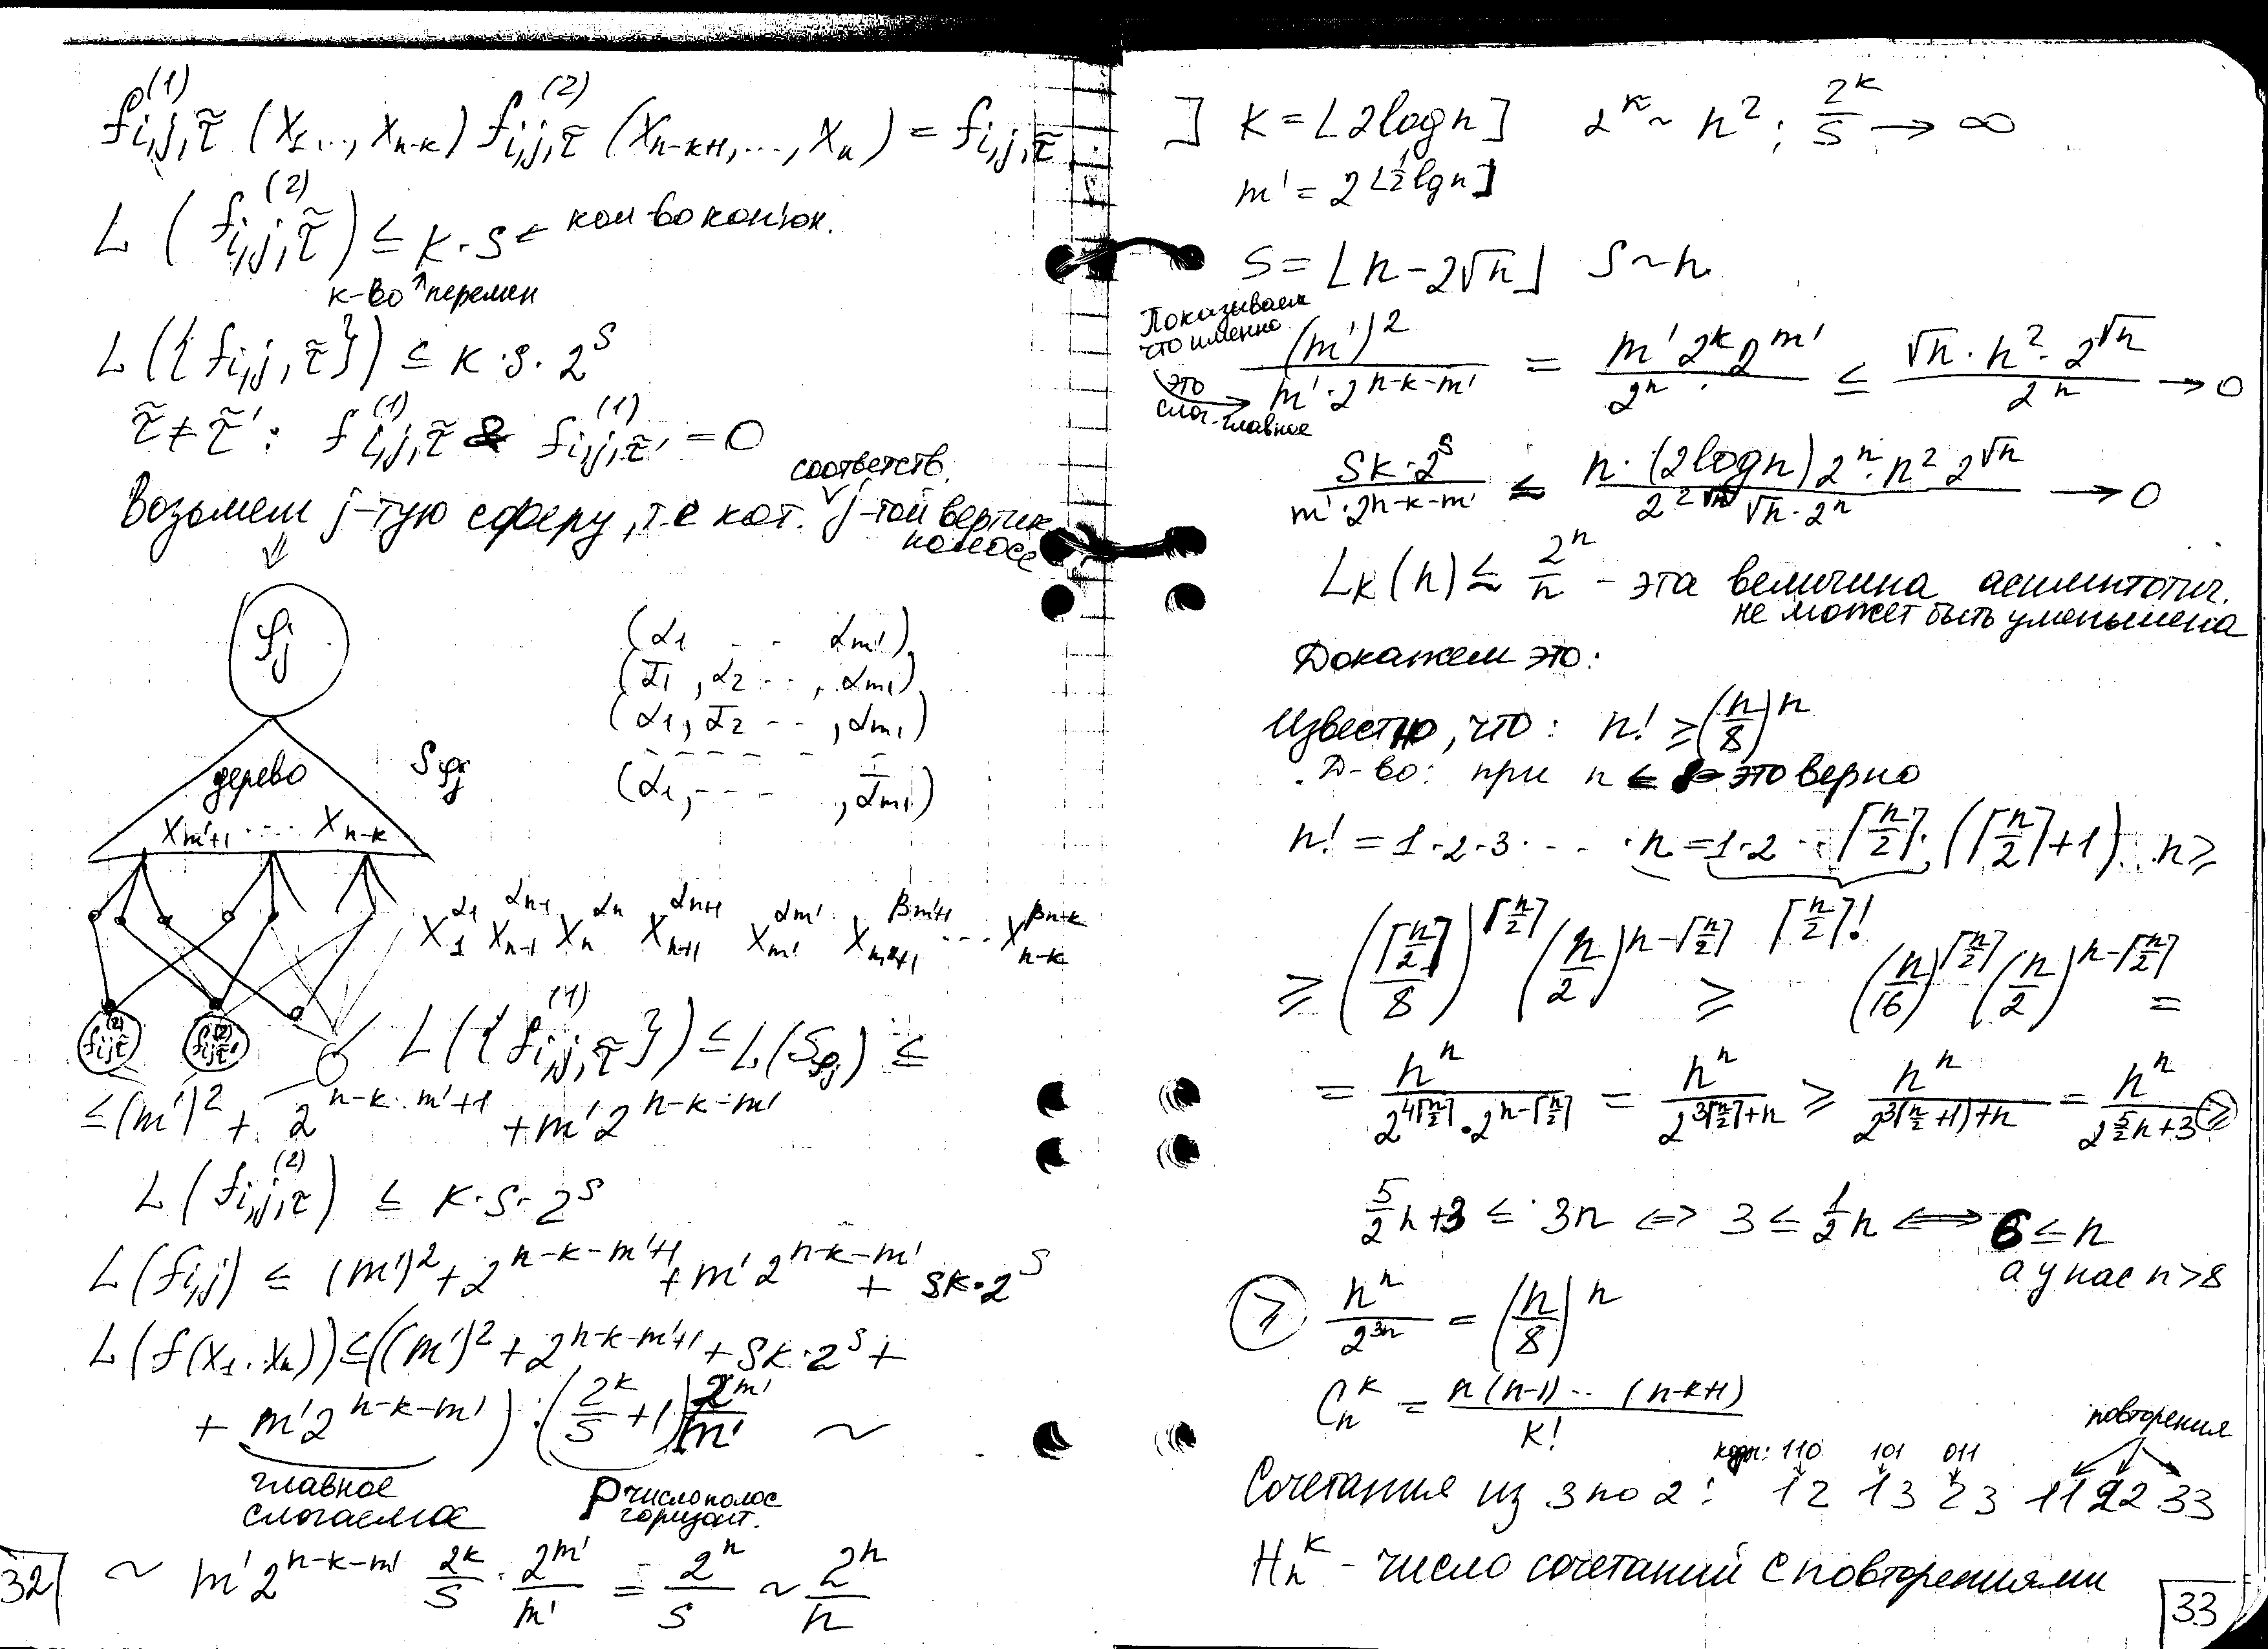 f^{(1)}_{i,j,τ̃} (x_1 ..., x_{n-k}) f^{(2)}_{i,j,τ̃} (x_{n-k+1}, ..., x_n) = f_{i,j,τ̃}
L (f^{(2)}_{i,j,τ̃}) ≤ k · s ← кол-во конъюн.
к-во ↑ перемен
L({f_{i,j,τ̃}}) ≤ k · s · 2^s
τ̃ ≠ τ̃' : f^{(1)}_{i,j,τ̃} & f^{(1)}_{i,j,τ̃'} = 0
соответств.
Возьмем j-тую сферу, т.е. кот. j-той вертик.
полосе
φ_j
(α_1 . . - α_{m'}),
(ᾱ_1, α_2 . . , α_{m'}),
(α_1, ᾱ_2 - - , α_{m'})
S_{φ_j}
(α_1, - - - , ᾱ_{m'})
дерево
x_{m'+1} · · · x_{n-k}
x_1^{α_1} x_{n-1}^{α_{n-1}} x_n^{α_n} x_{n+1}^{α_{n+1}} x_{m'}^{α_{m'}} x_{m'+1}^{β_{m'+1}} ... x_{n-k}^{β_{n-k}}
f^{(2)}_{ijτ̃} f^{(2)}_{ijτ̃'} L({f^{(1)}_{i,j,τ̃}}) ≤ L(S_{φ_j}) ≤
≤ (m')^2 + 2^{n-k-m'+1} + m' 2^{n-k-m'}
L (f^{(2)}_{i,j,τ̃}) ≤ k · s · 2^s
L(f_{i,j}) ≤ (m')^2 + 2^{n-k-m'+1} + m' 2^{n-k-m'} + sk · 2^s
L(f(x_1 .. x_n)) ≤ ((m')^2 + 2^{n-k-m'+1} + sk · 2^s +
+ m' 2^{n-k-m'}) · (2^k/s + 1) 2^{m'}/m' ~
главное
слагаемое
p число полос
горизонт.
~ m' 2^{n-k-m'} 2^k/s · 2^{m'}/m' = 2^n/s ~ 2^n/n
32
] k = [2 log n] 2^k ~ n^2 ; 2^k/s → ∞
m' = 2^{[1/2 lg n]}
s = ⌊n - 2√n⌋ s ~ n.
Показываем
что именно
это
слаг. главное
(m')^2 / (m' · 2^{n-k-m'}) = m' 2^k 2^{m'} / 2^n ≤ √n · n^2 · 2^{√n} / 2^n → 0
sk · 2^s / (m' · 2^{n-k-m'}) ≤ n · (2 log n) 2^n · n^2 2^{√n} / (2^{2√n} √n · 2^n) → 0
L_K (n) ≲ 2^n/n - эта величина асимптотич.
не может быть уменьшена
Докажем это:
Известно, что : n! ≥ (n/8)^n
Д-во: при n ≤ 8 это верно
n! = 1 · 2 · 3 · ... · n = 1 · 2 · · ⌈n/2⌉ · (⌈n/2⌉ + 1) .. n ≥
⌈n/2⌉!
≥ (⌈n/2⌉/8)^{⌈n/2⌉} (n/2)^{n-⌈n/2⌉} ≥ (n/16)^{⌈n/2⌉} (n/2)^{n-⌈n/2⌉} =
= n^n / (2^{4⌈n/2⌉} · 2^{n-⌈n/2⌉}) = n^n / 2^{3⌈n/2⌉+n} ≥ n^n / 2^{3(n/2+1)+n} = n^n / 2^{5/2 n+3} ≥
5/2 n + 3 ≤ 3n ⇔ 3 ≤ 1/2 n ⇔ 6 ≤ n
а у нас n > 8
≥ n^n / 2^{3n} = (n/8)^n
C_n^k = n(n-1) .. (n-k+1) / k!
повторения
коды: 110 101 011
Сочетания из 3 по 2 : 12 13 23 11 22 33
H_n^k - число сочетаний с повторениями
33